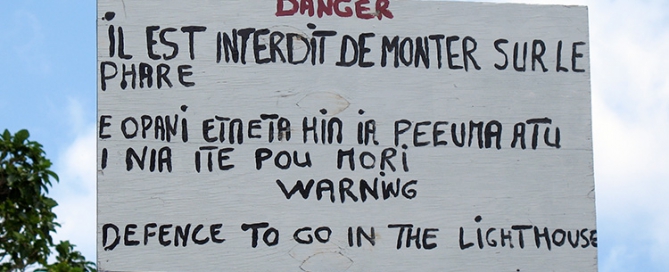 DANGER
IL EST INTERDIT DE MONTER SUR LE
PHARE
E OPANI ETNETA HIN IA PEEUMA ATU
I NIA ITE POU MORI
WARNING
DEFENCE TO GO IN THE LIGHTHOUSE